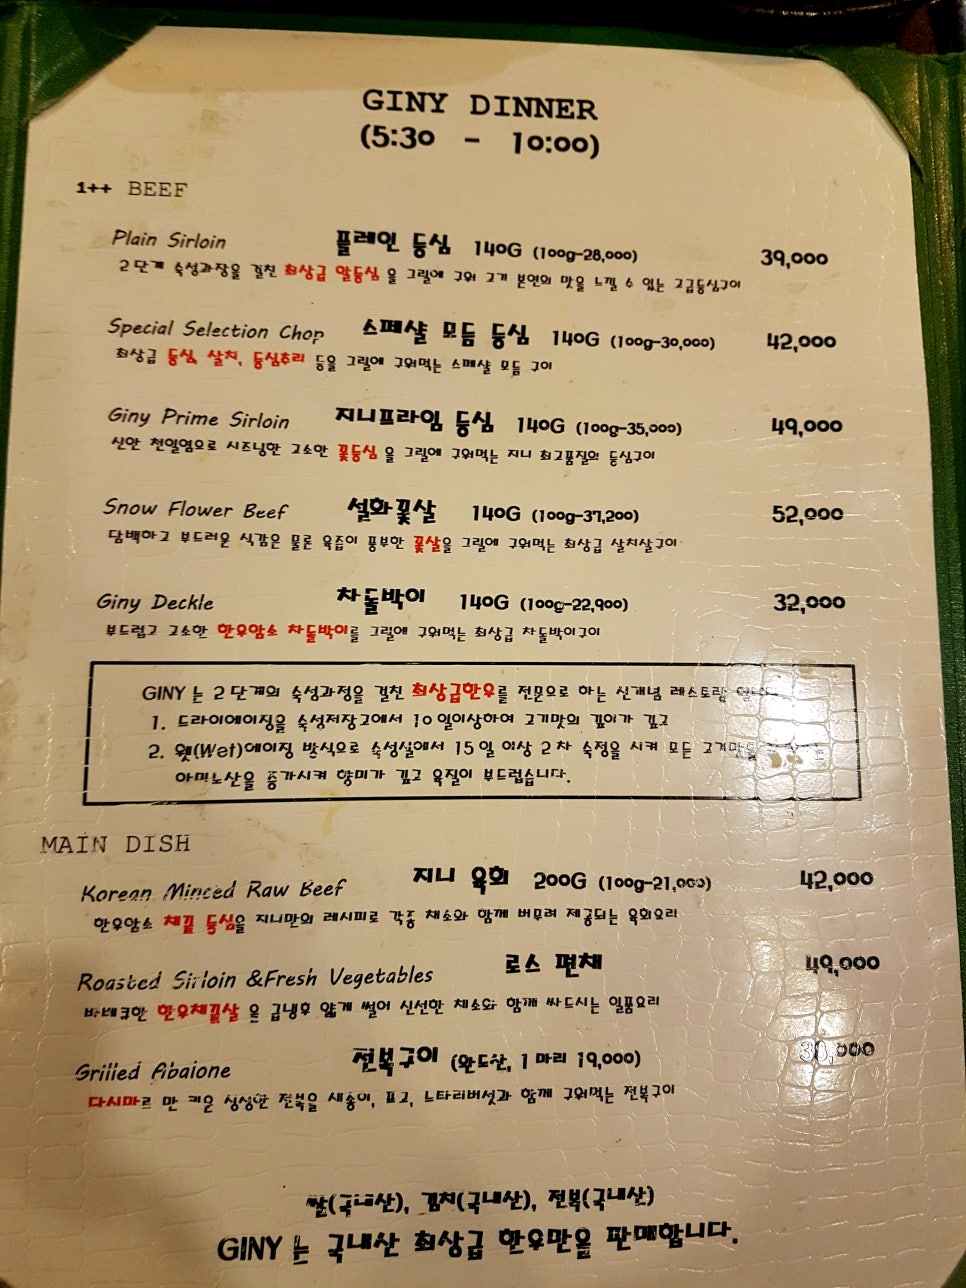 GINY DINNER
(5:30 - 10:00)
1++ BEEF
Plain Sirloin 플레인 등심 140G (100g-28,000) 39,000
2단계 숙성과장을 걸친 최상급 알등심 을 그릴에 구워 고기 본연의 맛을 느낄 수 있는 고급등심구이
Special Selection Chop 스페샬 모듬 등심 140G (100g-30,000) 42,000
최상급 등심, 살치, 등심추리 등을 그릴에 구워먹는 스페샬 모듬 구이
Giny Prime Sirloin 지니프라임 등심 140G (100g-35,000) 49,000
신안 천일염으로 시즈닝한 고소한 꽃등심 을 그릴에 구워먹는 지니 최고품질의 등심구이
Snow Flower Beef 설화꽃살 140G (100g-37,200) 52,000
담백하고 부드러운 식감은 물론 육즙이 풍부한 꽃살을 그릴에 구워먹는 최상급 살치살구이
Giny Deckle 차돌박이 140G (100g-22,900) 32,000
부드럽고 고소한 한우암소 차돌박이를 그릴에 구워먹는 최상급 차돌박이구이
GINY 는 2단계의 숙성과정을 걸친 최상급한우를 전문으로 하는 신개념 레스토랑
1. 드라이에이징을 숙성저장고에서 10일이상하여 고기맛의 깊이가 깊고
2. 웻(Wet)에이징 방식으로 숙성실에서 15일 이상 2차 숙성을 시켜 모든 고기맛을
아미노산을 증가시켜 향미가 깊고 육질이 부드럽습니다.
MAIN DISH
Korean Minced Raw Beef 지니 육회 200G (100g-21,000) 42,000
한우암소 채끝 등심을 지니만의 레시피로 각종 채소와 함께 버무려 제공되는 육회요리
Roasted Sirloin &Fresh Vegetables 로스 편채 49,000
바베큐한 한우채끝살 을 급냉후 얇게 썰어 신선한 채소와 함께 싸드시는 일품요리
Grilled Abalone 전복구이 (완도산, 1마리 19,000) 38,000
다시마로 만 키운 싱싱한 전복을 새송이, 표고, 느타리버섯과 함께 구워먹는 전복구이
쌀(국내산), 김치(국내산), 전복(국내산)
GINY 는 국내산 최상급 한우만을 판매합니다.